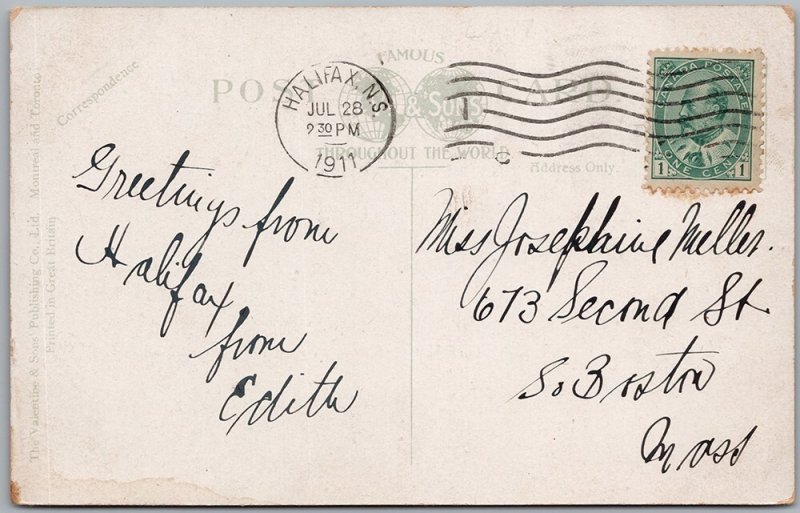 FAMOUS
POST CARD
& Sons
THROUGHOUT THE WORLD
Address Only.
Correspondence
The Valentine & Sons Publishing Co., Ltd. Montreal and Toronto.
Printed in Great Britain
HALIFAX, N.S.
JUL 28
2 30 PM
1911
CANADA POSTAGE
1 ONE CENT 1
Greetings from
Halifax
from
Edith
Miss Josephine Meller.
673 Second St
So Boston
Mass